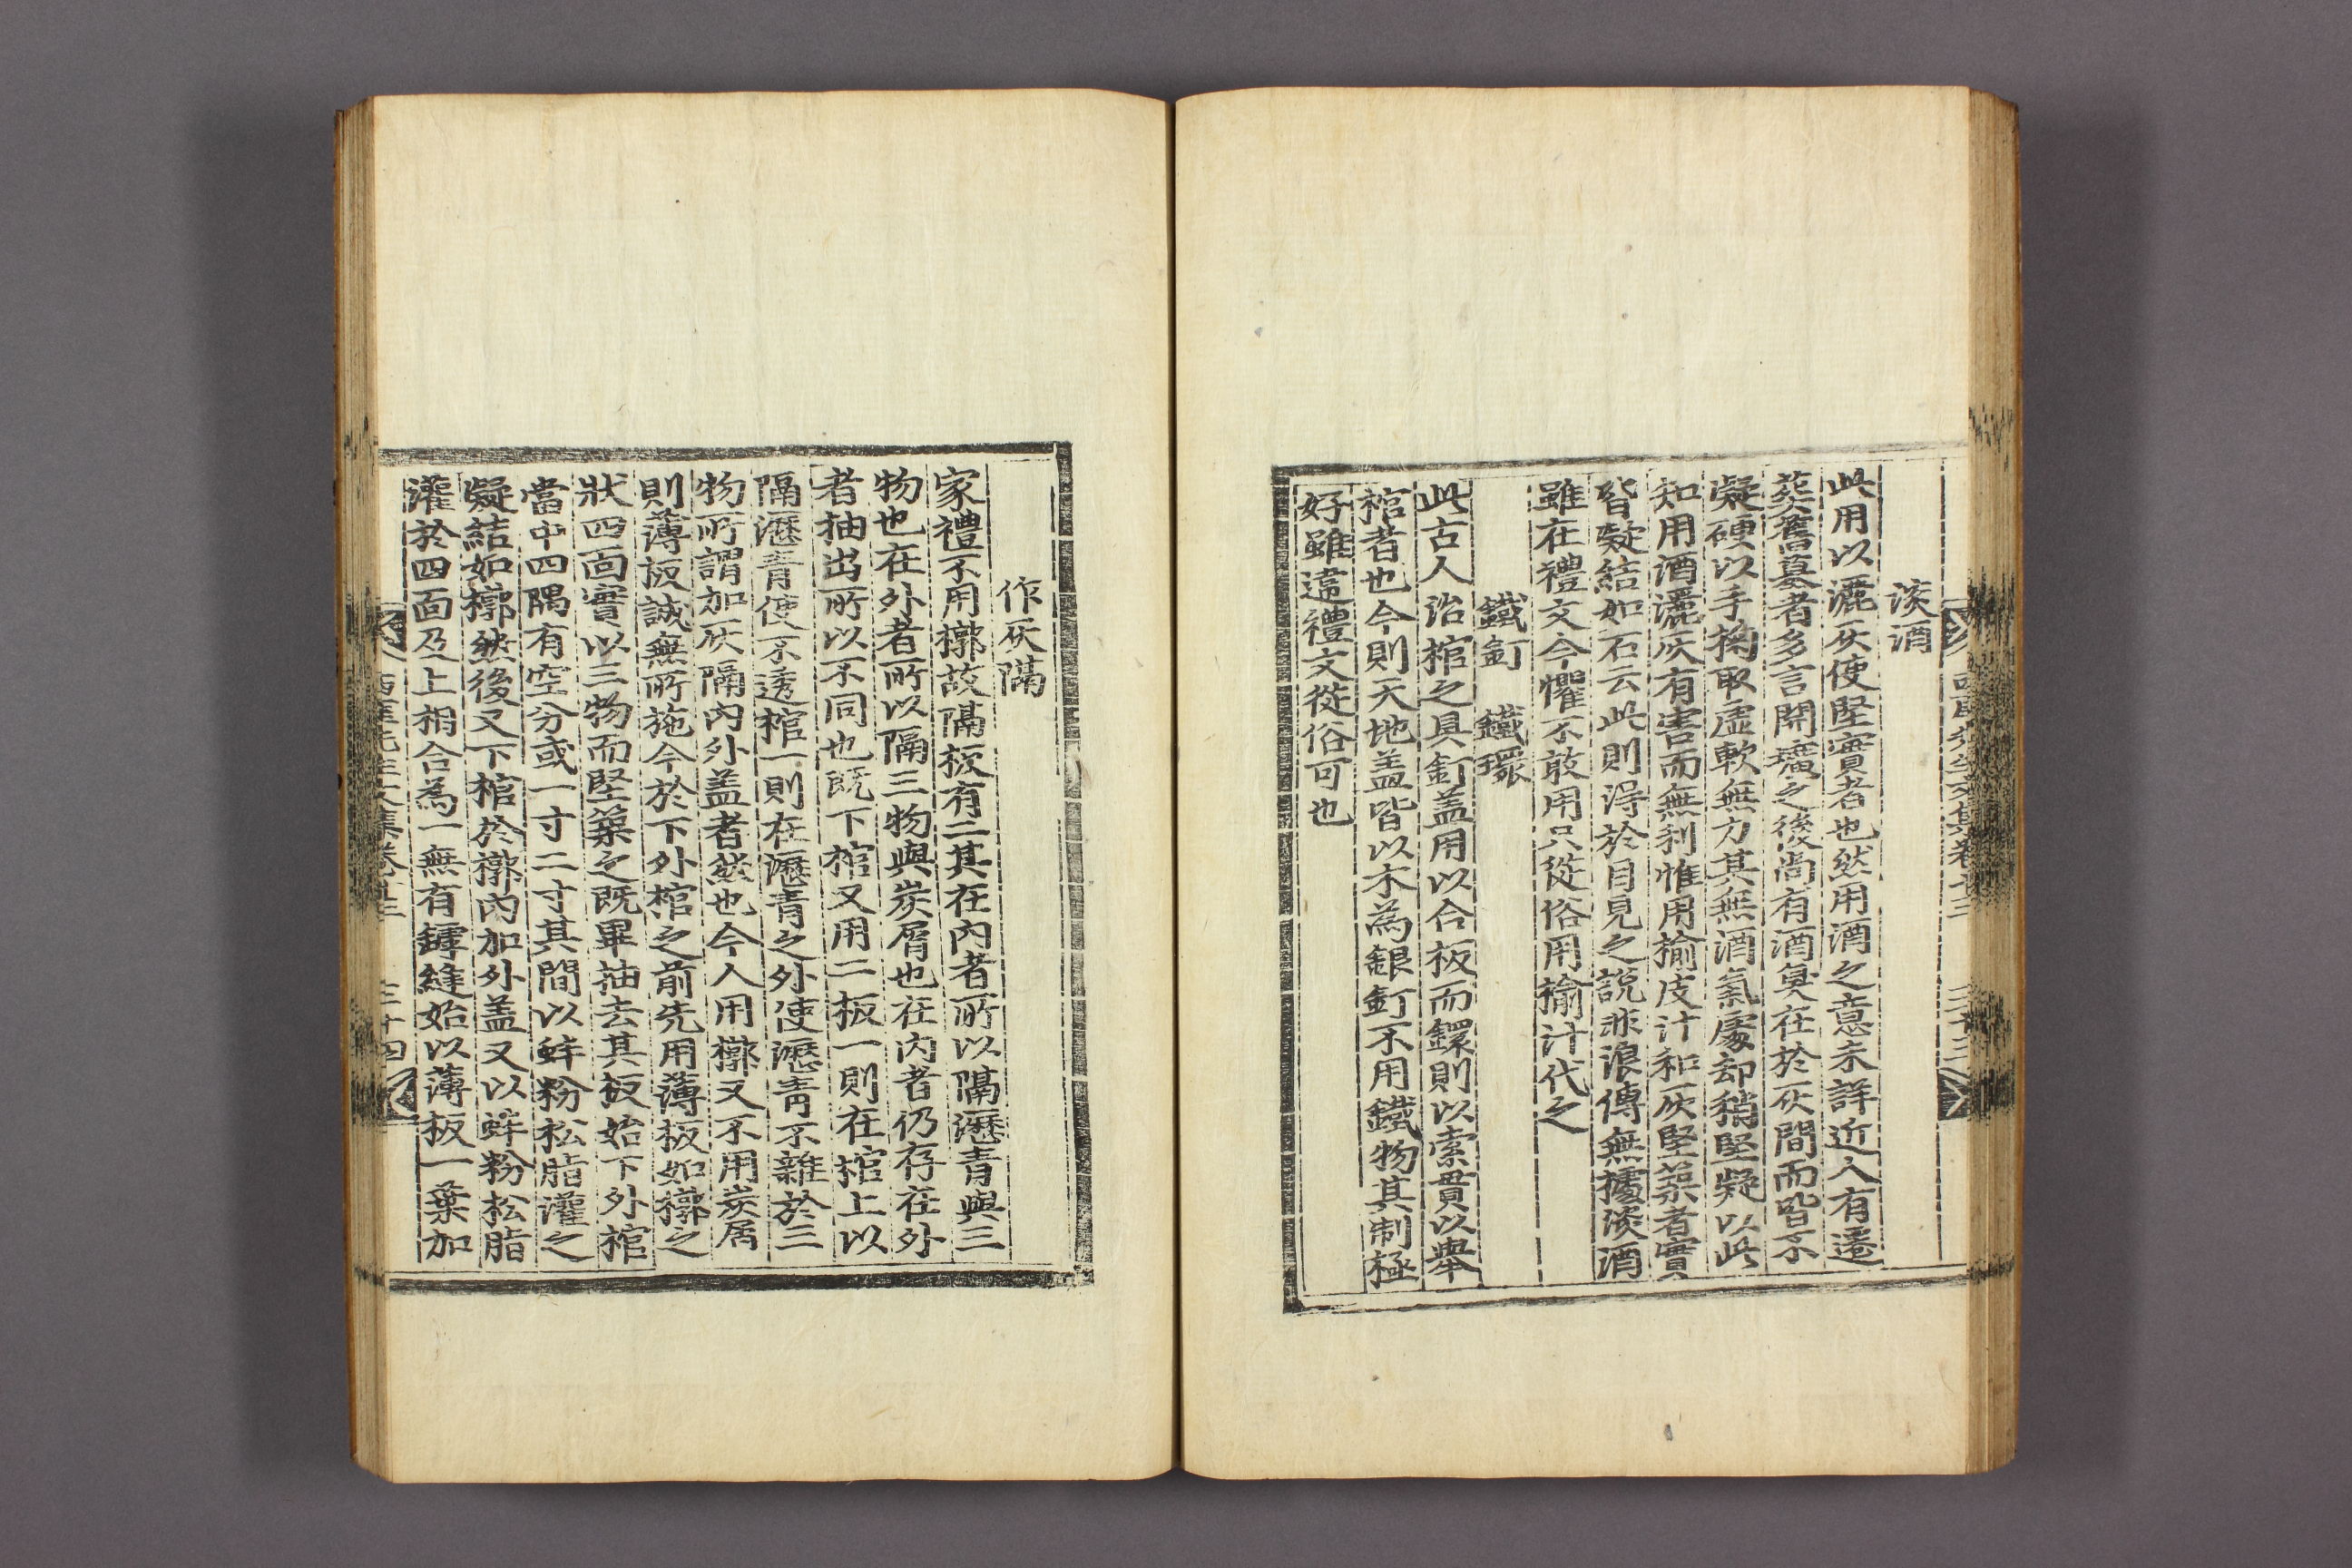 淡酒
此用以灑灰使堅實者也然用酒之意未詳近人有遷
葬舊墓者多言開壙之後尚有酒臭在於灰間而皆不
凝硬以手掬取虛軟無力其無酒氣處却稍堅凝以此
知用酒灑灰有害而無利惟用楡皮汁和灰堅築者實
皆凝結如石云此則得於目見之說非浪傳無據淡酒
雖在禮文今懼不敢用只從俗用楡汁代之
鐵釘 鐵環
此古人治棺之具釘盖用以合板而鐶則以索貫以擧
棺者也今則天地盖皆以木為銀釘不用鐵物其制極
好雖違禮文從俗可也
作灰隔
家禮不用槨故隔板有二其在內者所以隔瀝青與三
物也在外者所以隔三物與炭屑也在內者仍存在外
者抽出所以不同也旣下棺又用二板一則在棺上以
隔瀝青使不透棺一則在瀝青之外使瀝靑不雜於三
物所謂加灰隔內外盖者然也今人用槨又不用炭屑
則薄板誠無所施今於下外棺之前先用薄板如槨之
狀四面實以三物而堅築之旣畢抽去其板始下外棺
當中四隅有空分或一寸二寸其間以蚌粉松脂灌之
凝結如槨然後又下棺於槨內加外盖又以蚌粉松脂
灌於四面及上相合為一無有罅縫始以薄板一葉加
西厓先生文集卷十三 三十四